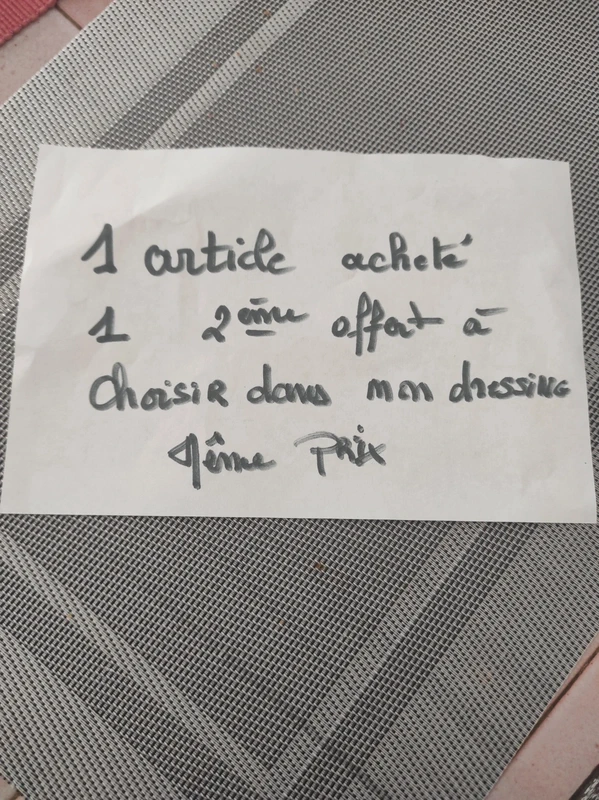 1 article acheté
1 2ème offert à
choisir dans mon dressing
même Prix